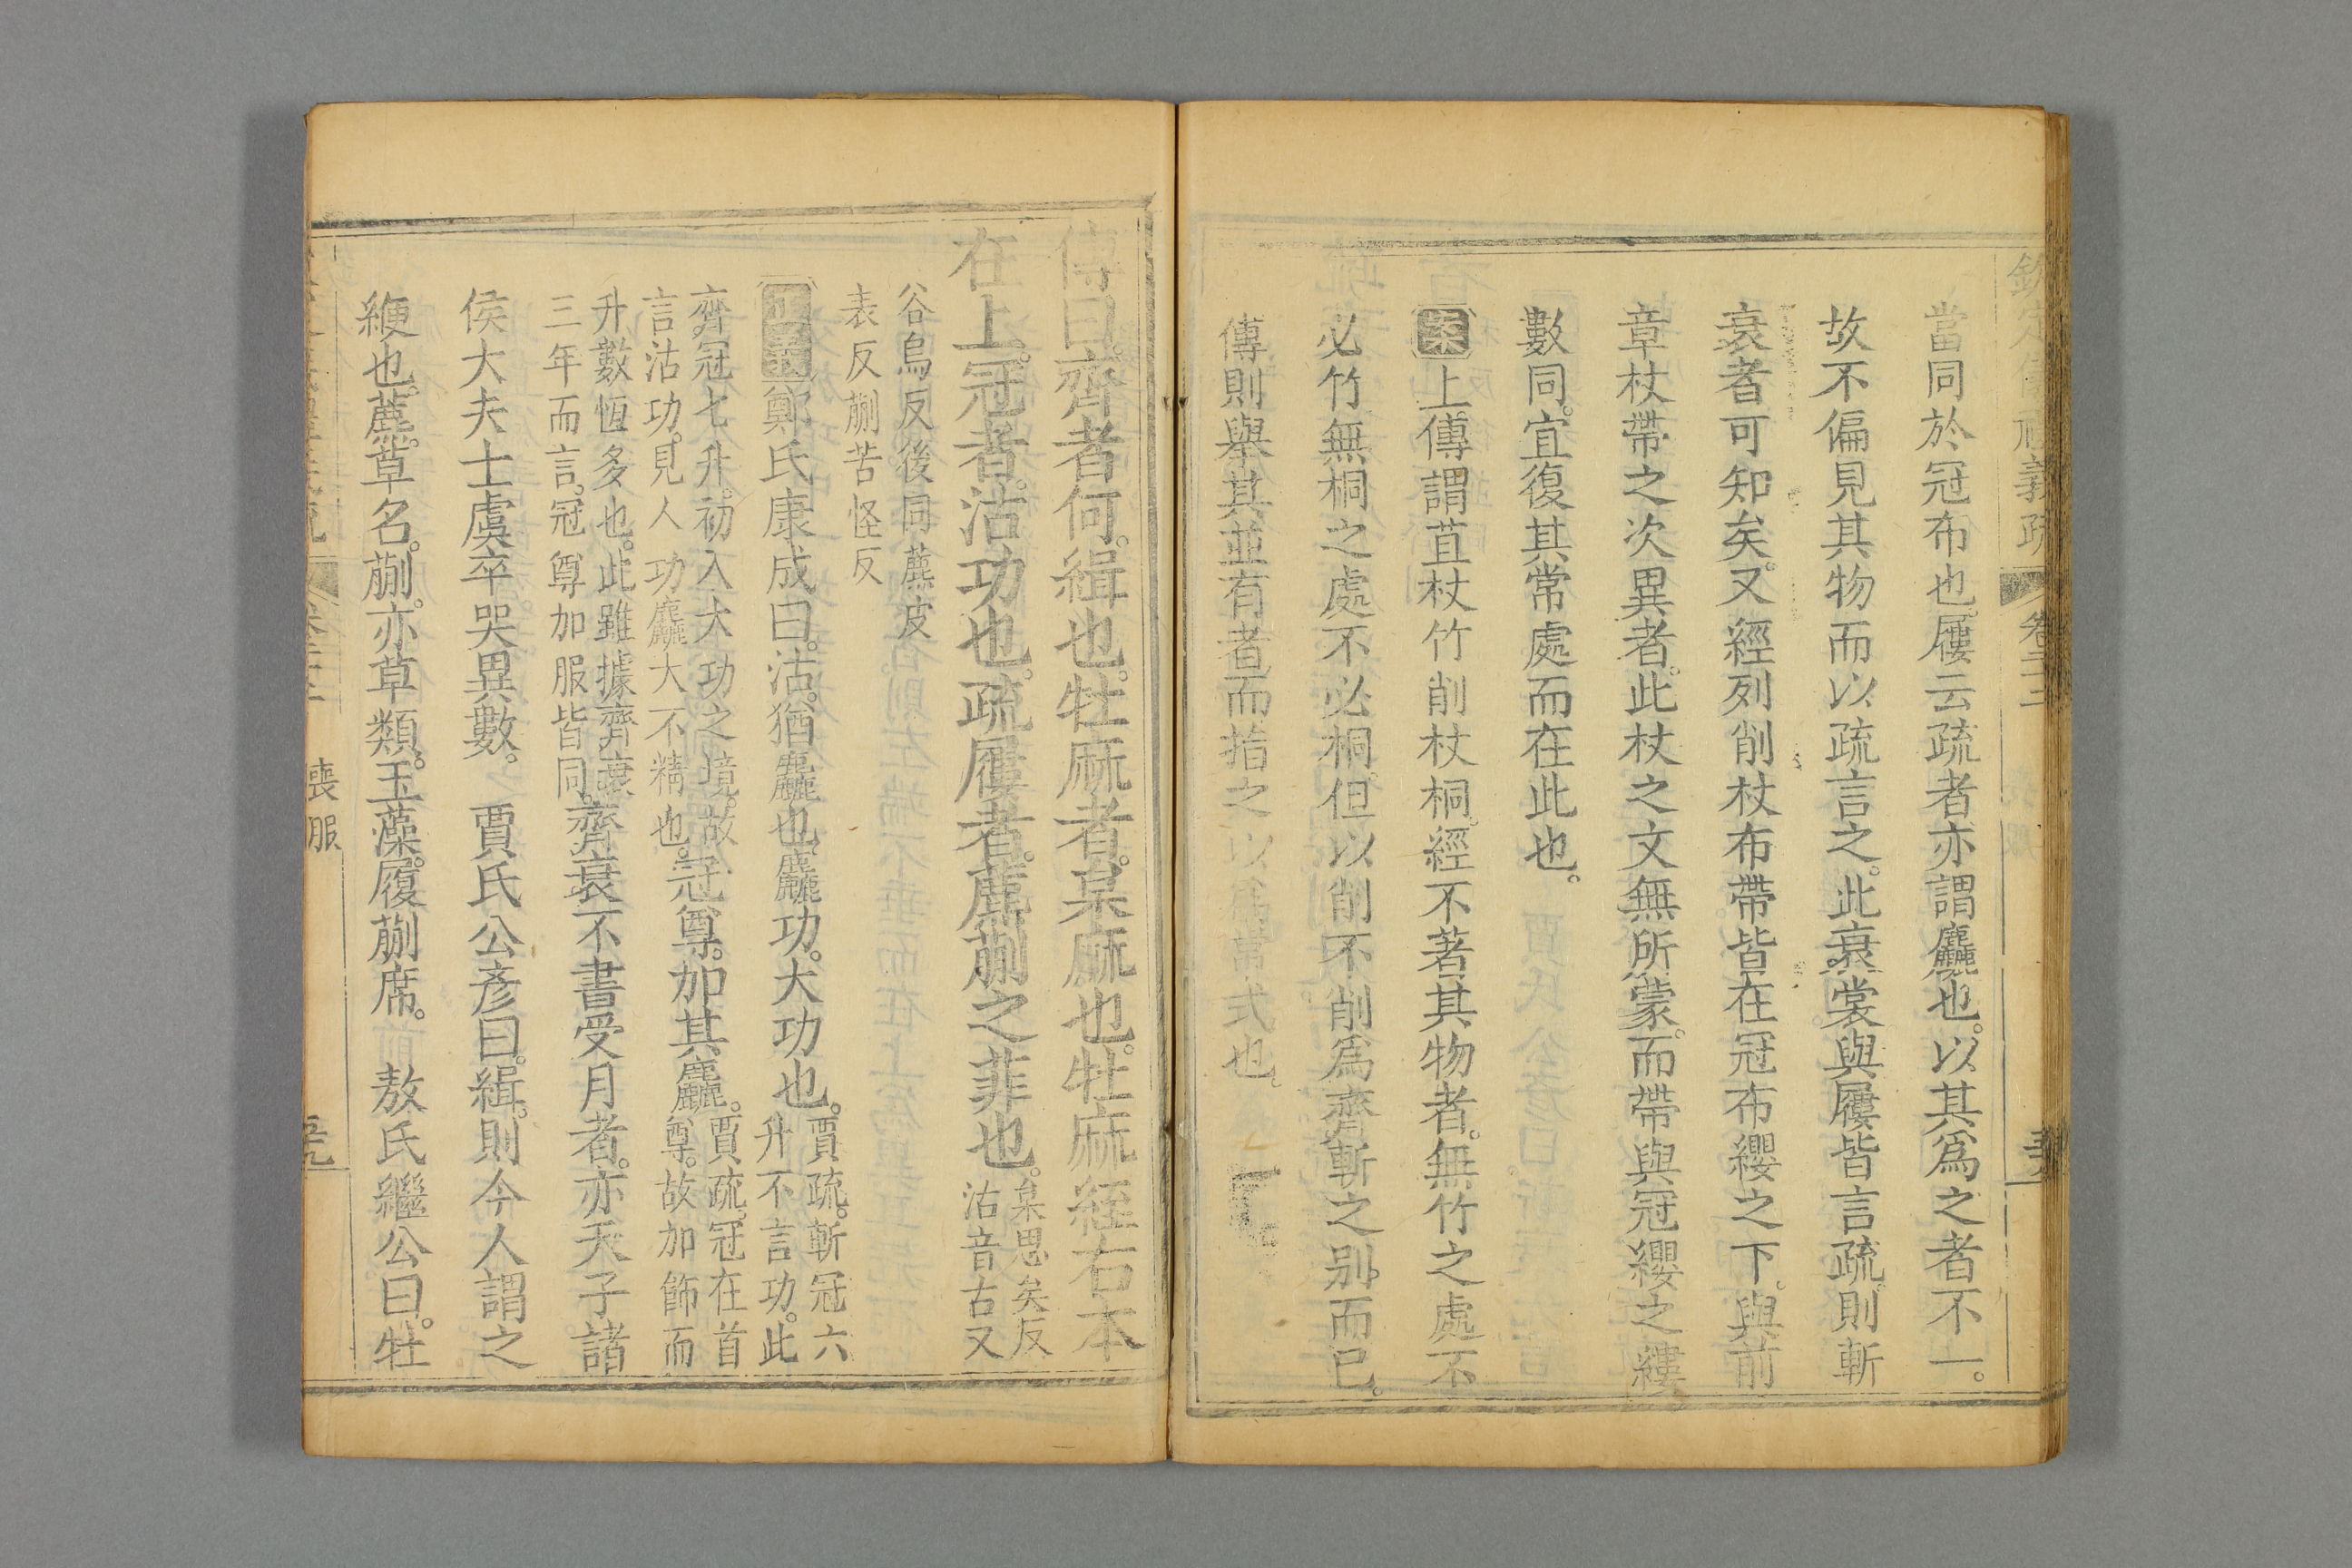 當同於冠布也屨云疏者亦謂麤也以其爲之者不一。
故不偏見其物而以疏言之。此衰裳與屨皆言疏則斬
衰者可知矣。又經列削杖布帶皆在冠布纓之下。與前
章杖帶之次異者。此杖之文無所蒙。而帶與冠纓之縷
數同。宜復其常處而在此也。
案上傳謂苴杖竹削杖桐。經不著其物者。無竹之處不
必竹無桐之處不必桐。但以削不削爲齊斬之别而已。
傳則舉其並有者而指之以爲常式也。
傳曰。齊者何。緝也。牡麻者。枲麻也。牡麻絰右本
在上。冠者。沽功也。疏屨者。藨蒯之菲也。枲思矣反
沽音古又
谷烏反後同藨皮
表反蒯苦怪反
正義鄭氏康成曰。沽。猶麤也。麤功。大功也。賈疏。斬冠六
升不言功。此
齊冠七升。初入大功之境。故
言沽功。見人功麤大不精也。冠尊。加其麤。賈疏。冠在首
尊。故加飾而
升數恆多也。此雖據齊衰
三年而言。冠尊加服皆同。齊衰不書受月者。亦天子諸
侯大夫士虞卒哭異數。 賈氏公彥曰。緝。則今人謂之
緶也。藨。草名。蒯。亦草類。玉藻。履蒯席。 敖氏繼公曰。牡
喪服